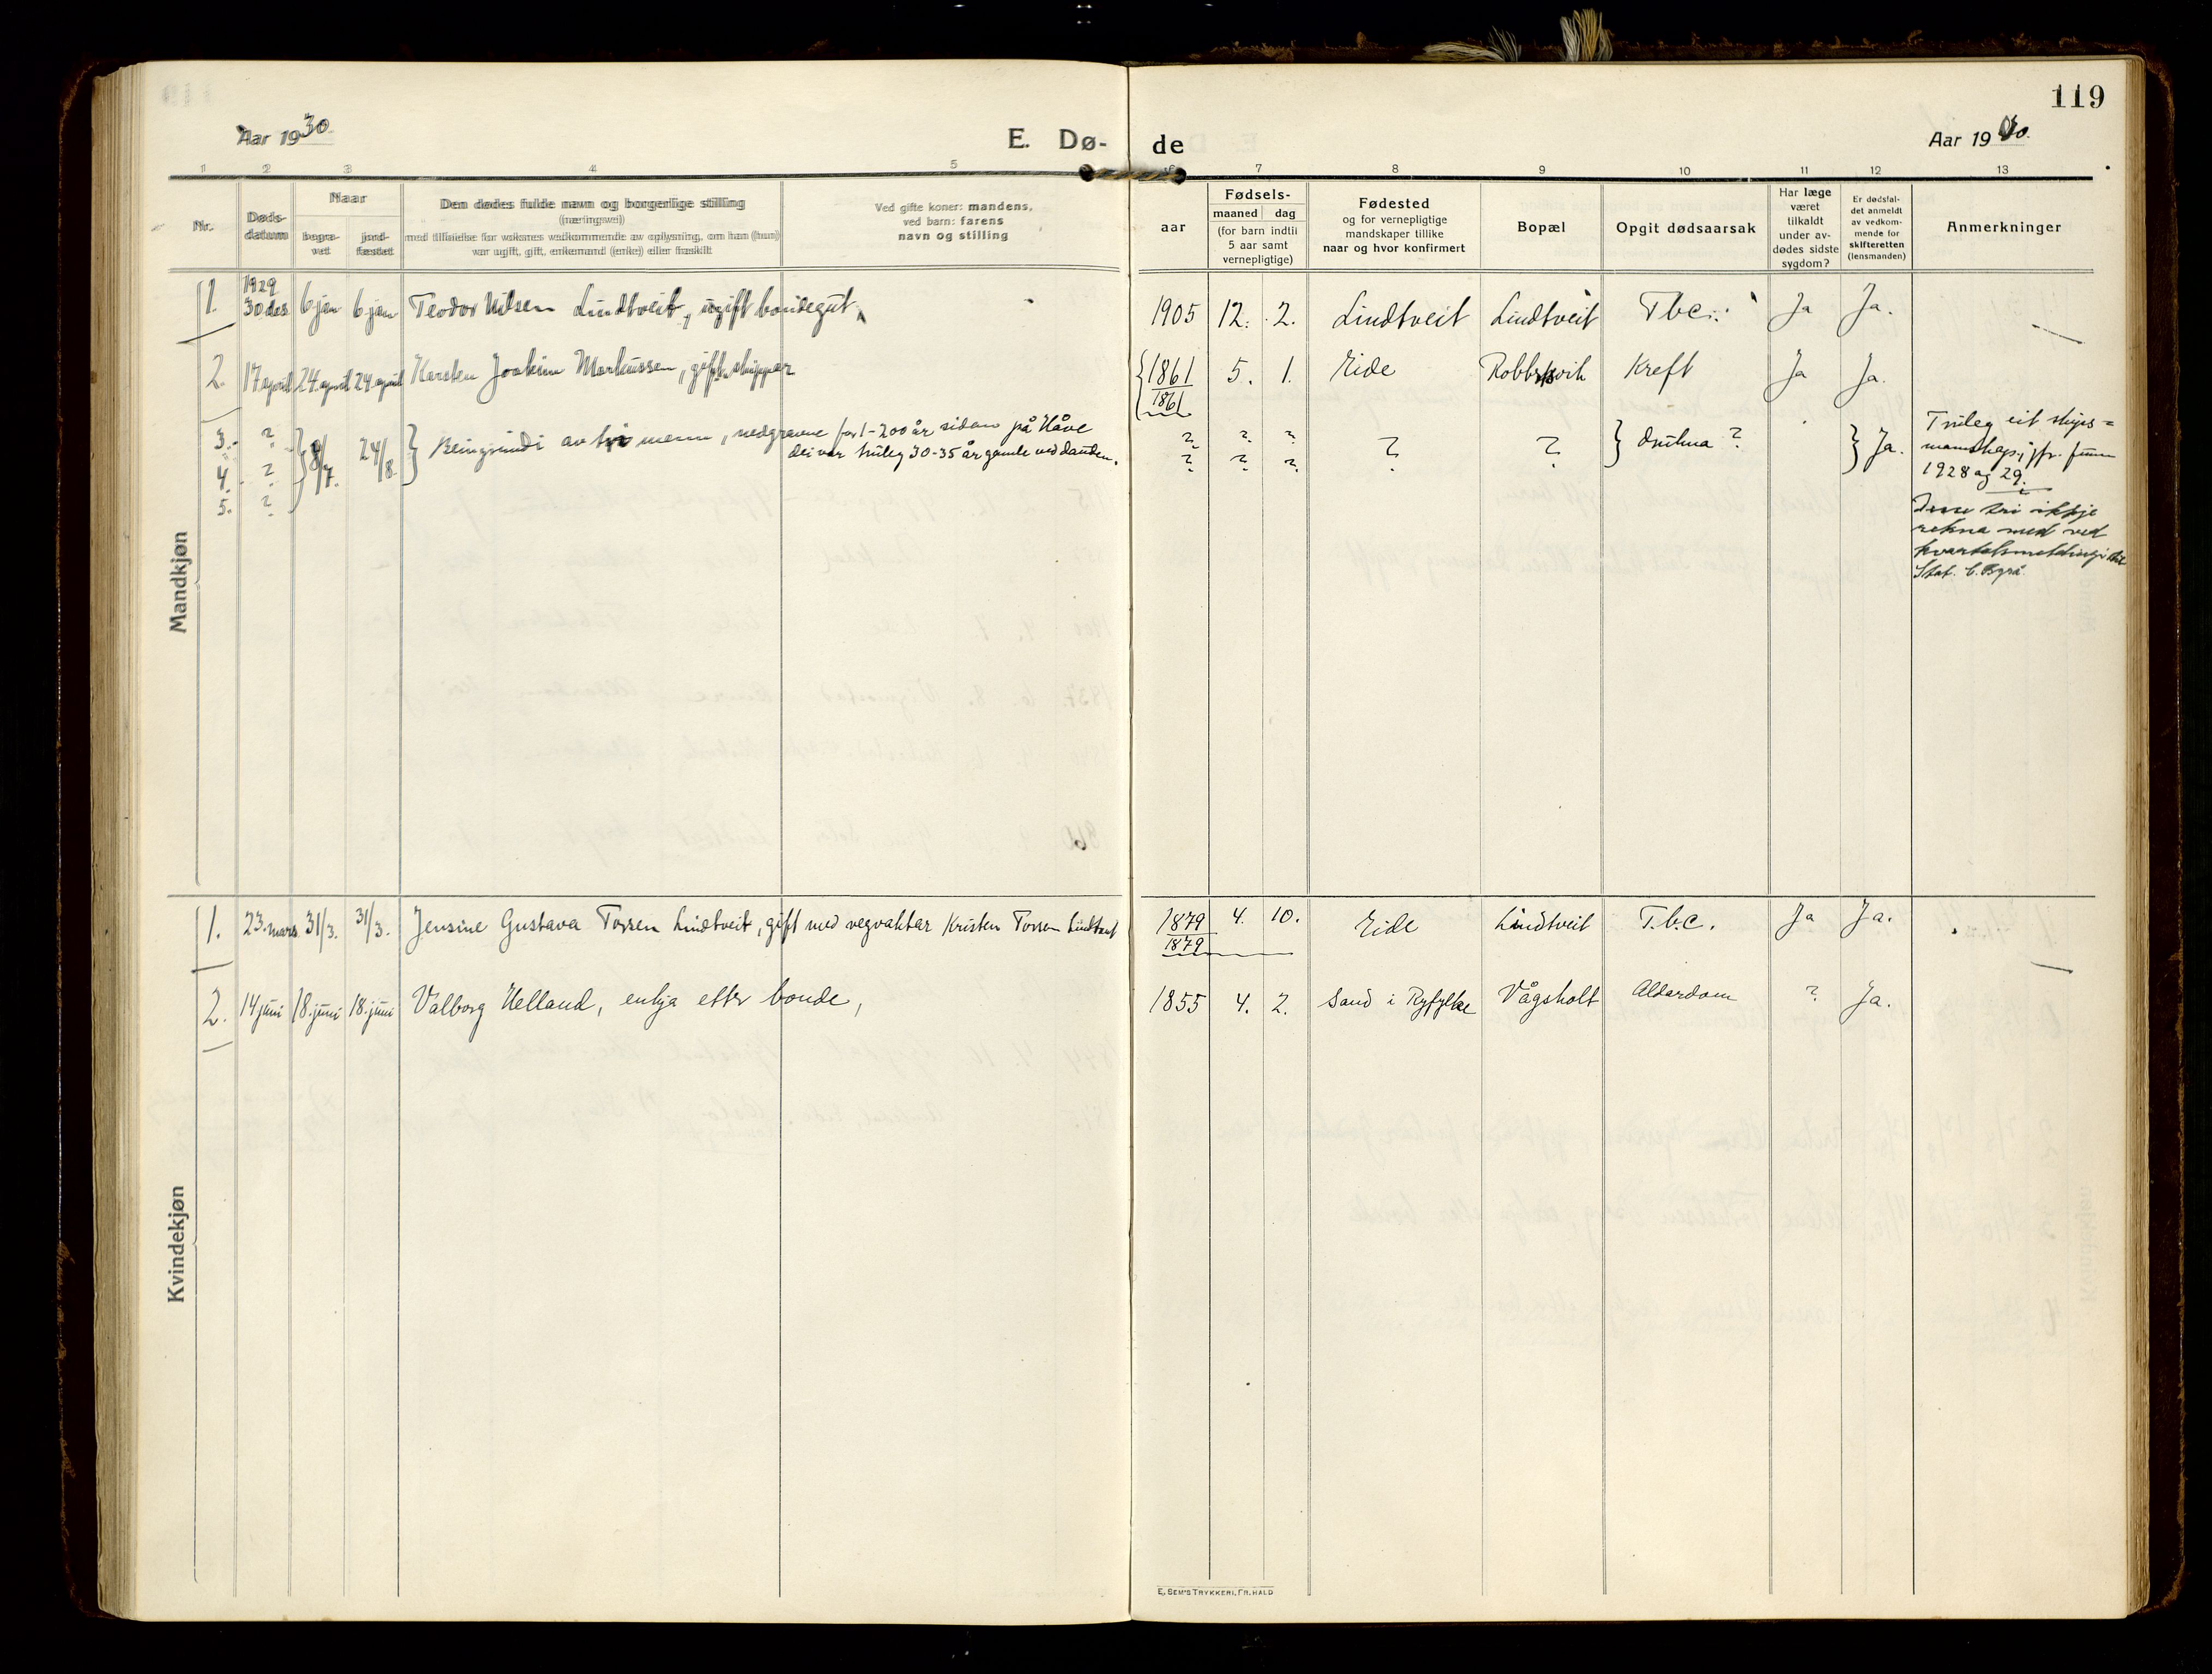 119
Aar 1930
E. Dø-
de
Aar 1930.
1 2 3 4 5 6 7 8 9 10 11 12 13
Nr.
Døds-
datum
Naar
begra-
vet
jord-
fæstet
Den dødes fulde navn og borgerlige stilling
(næringsvei)
med tilføielse for voksnes vedkommende av oplysning, om han (hun)
var ugift, gift, enkemand (enke) eller fraskilt
Ved gifte koner: mandens,
ved barn: farens
navn og stilling
aar
Fødsels-
maaned dag
(for barn indtil
5 aar samt
vernepligtige)
Fødested
og for vernepligtige
mandskaper tillike
naar og hvor konfirmert
Bopæl
Opgit dødsaarsak
Har læge
været
tilkaldt
under av-
dødes sidste
sygdom?
Er dødsfal-
det anmeldt
av vedkom-
mende for
skifteretten
(lensmanden)
Anmerkninger
Mandkjøn
1. 1929 30 des. 6 jan 6 jan Teodor Nilsen Lindtveit, ugift bondegut, 1905 12. 2. Lindtveit Lindtveit Tbc. Ja Ja.
2. 17 april 24. april 24. april Karsten Joakim Markussen, gift, skippar 1861 5. 1. Eide Kreft Ja Ja.
1861
3. ? 8/7. 24/8. Beingrindi av tri menn, nedgravne for 1-200 år sidan på Håve ? ? ? ? ? drukna ? Ja.
4. ? dei var truleg 30-35 år gamle ved dauden. ? ? ?
5. ?
Truleg eit skips=
mannskap, jfr. funn
1928 og 29.
Desse tri ikkje
rekna med ved
kvartalsmeldingi til
Stat. C. Byrå.
Kvindekjøn
1. 23. mars. 31/3. 31/3. Jensine Gustava Torsen Lindtveit, gift med vegvaktar Kristen Torsen Lindtveit 1879 4. 10. Eide Lindtveit T.b.c. Ja Ja.
1879
2. 14 juni 18. juni 18. juni Valborg Helland, enkja etter bonde, 1855 4. 2. Sand i Ryfylke Vågsholt Alderdom ? Ja.
E. SEM'S TRYKKERI, FR.HALD